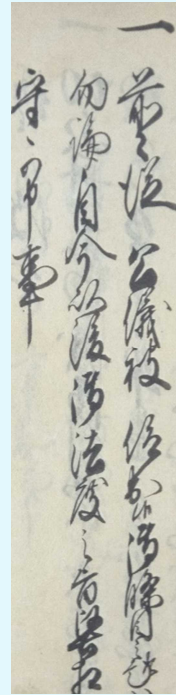 一 前々従 公儀被 仰出御条目之趣
勿論自今以後御法度之旨堅相
守可申事